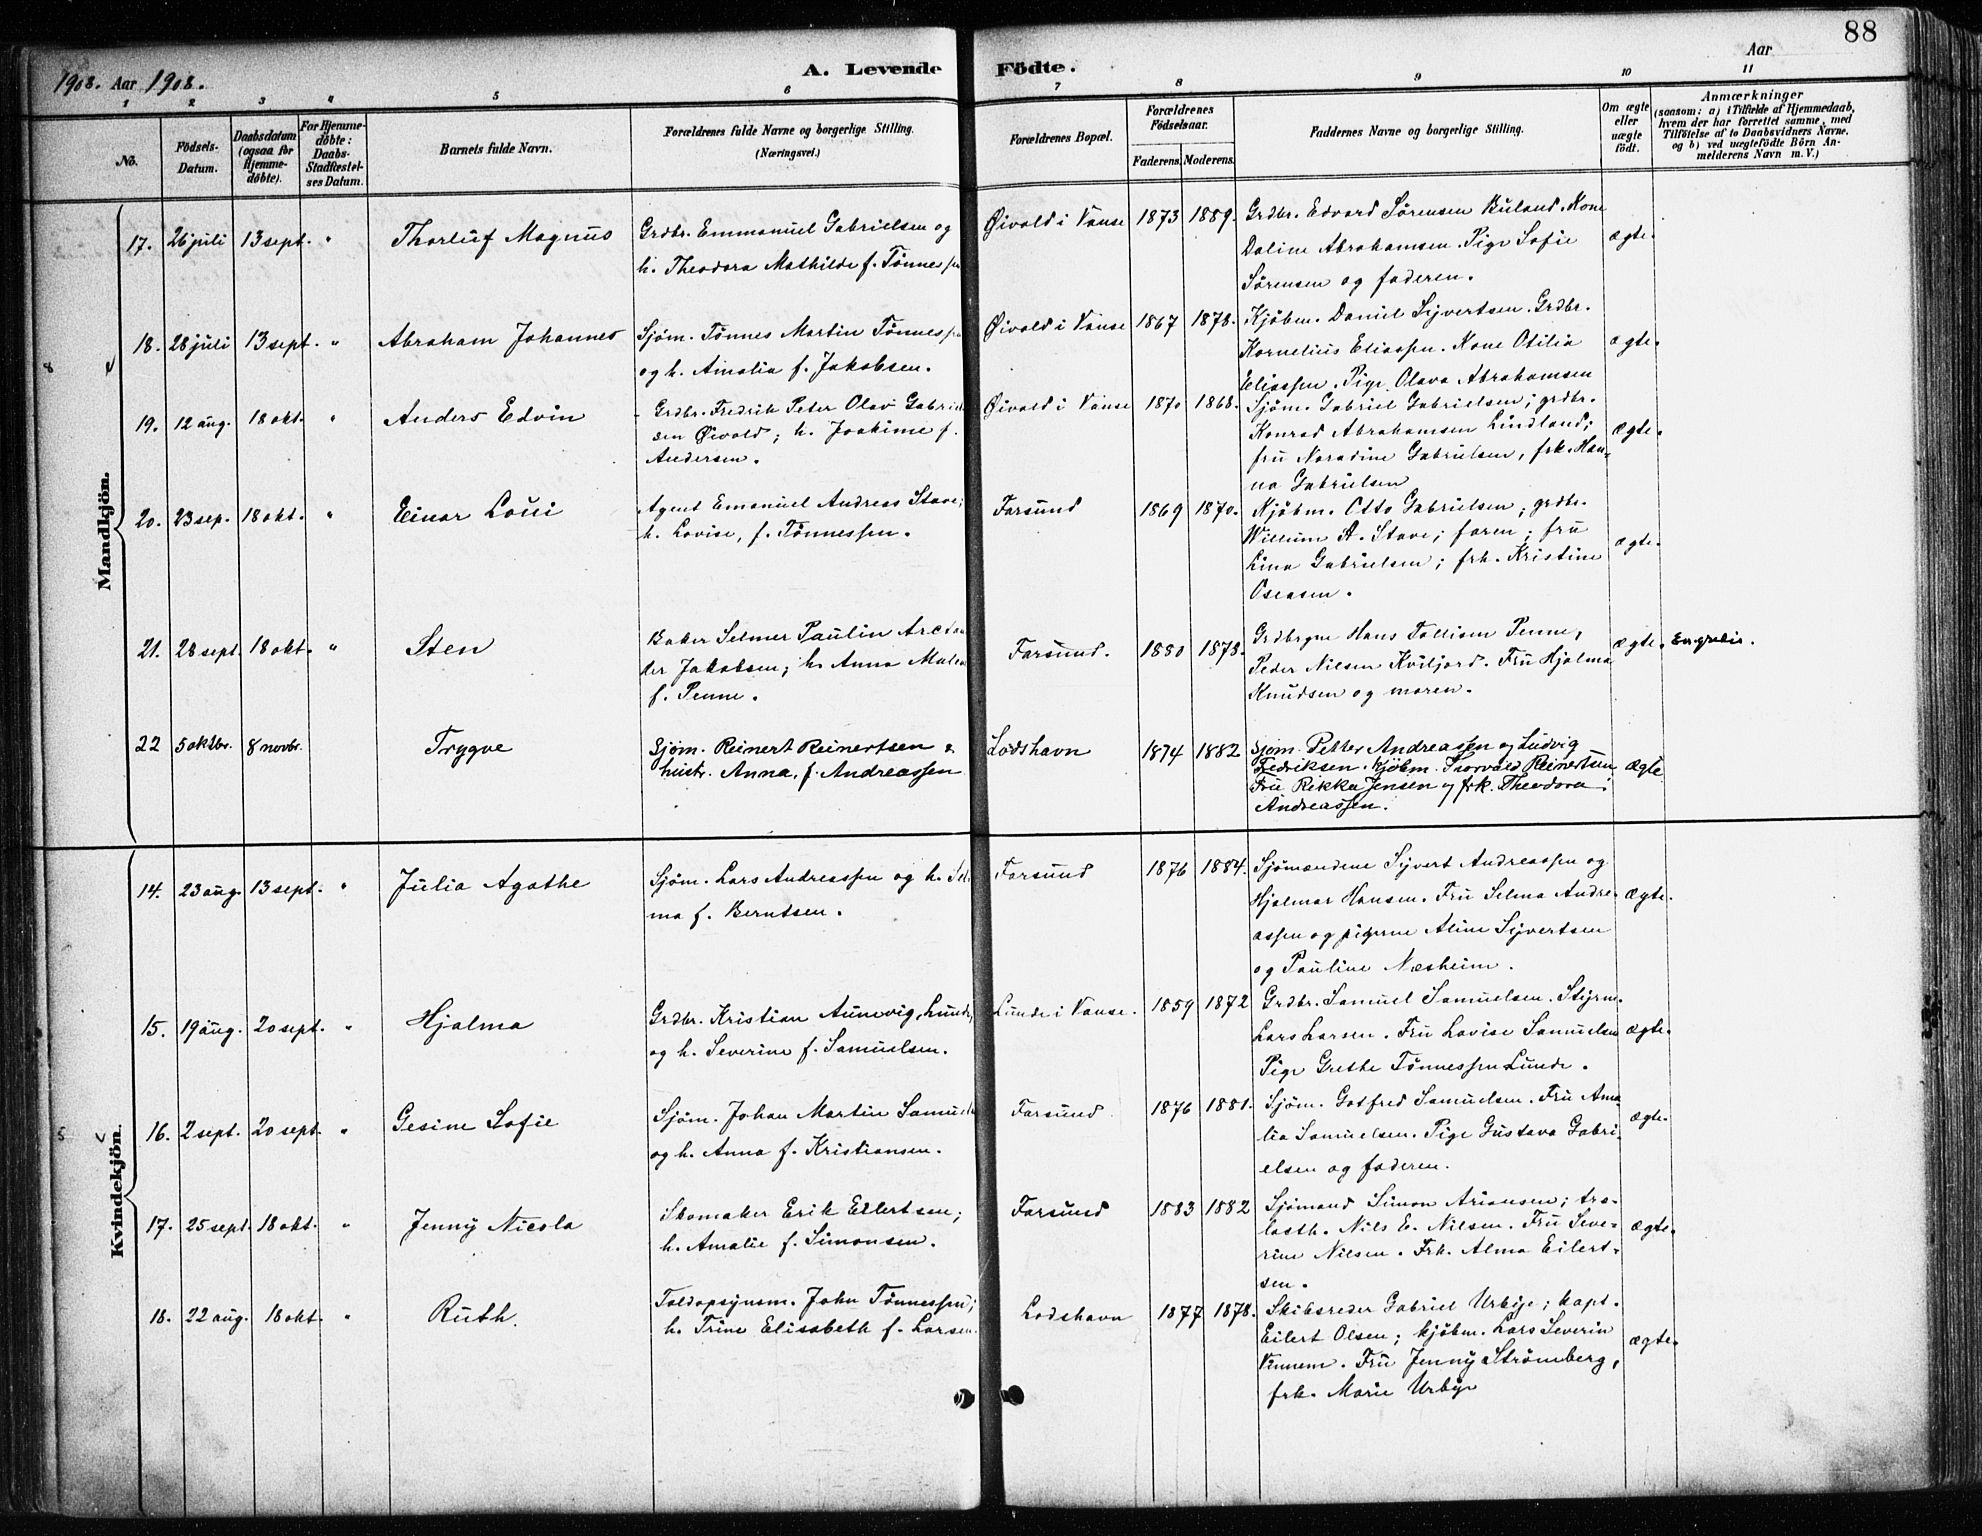 88
1908. Aar 1908.
A. Levende Födte.
Aar
1 2 3 4 5 6 7 8 9 10 11
No.
Födsels-Datum.
Daabsdatum (ogsaa for Hjemme-döbte).
For Hjemme-döbte: Daabs-Stadfæstel-ses Datum.
Barnets fulde Navn.
Forældrenes fulde Navne og borgerlige Stilling.
(Næringsvei.)
Forældrenes Bopæl.
Forældrenes Födselsaar.
Faderens. Moderens.
Faddernes Navne og borgerlige Stilling.
Om ægte eller uægte födt.
Anmærkninger
(saasom: a) i Tilfælde af Hjemmedaab,
hvem der har forrettet samme, med
Tilföielse af to Daabsvidners Navne.
og b) ved uægtefödte Börn An-
melderens Navn m. V.)
Mandkjön.
17. 26 juli 13 sept. " Thorluf Magnus
Grdbr. Emmanuel Gabrielsen og
h. Theodora Mathilde f. Tönnessen
Øivold i Vanse 1873 1889.
Grdbr. Edvard Sörensen Buland. Kone
Daline Abrahamsen. Pige Sofie
Sörensen og faderen.
ægte.
18. 28 juli 13 sept. " Abraham Johannes
Sjøm. Tönnes Martin Tönnessen
og h. Amalia f. Jakobsen.
Øivold i Vanse 1867 1878.
Kjöbm. Daniel Sijvertsen. Grdbr.
Kornelius Eliassen. Kone Otilia
Eliassen. Pige Olava Abrahamsen
ægte.
19. 12 aug. 18 okt. " Anders Edvin
Grdbr. Fredrik Peter Olav Gabriel
sen Øivold; h. Joakime f.
Andersen.
Øivold i Vanse 1870 1868.
Sjöm. Gabriel Gabrielsen; grdbr.
Konrad Abrahamsen Lindland;
fru Naradine Gabrielsen, frk. Han-
na Gabrielsen
ægte.
20. 23 sep. 18 okt. " Einar Loui
Agent Emanuel Andreas Stave;
h. Lovise, f. Tönnessen.
Farsund 1869 1870.
Kjöbm. Otto Gabrielsen; grdbr.
Willum A. Stave; faren; fru
Lina Gabrielsen; frk. Kristine
Oseasen.
ægte.
21. 28 sept. 18 okt. " Sten
Baker Selmer Paulin
der Jakobsen; h. Anna
f. Penne.
Farsund. 1880 1878.
Hans Tollisen Penne,
Peder Nilsen Kviljord. Fru Hjalma
Knudsen og moren.
ægte.
22 5 oktbr. 8 novbr. Trygve
Sjøm. Reinert Reinertsen &
hustr. Anna, f. Andreassen
Lodshavn 1874 1882
Sjöm. Petter Andreassen og Ludvig
Fredriksen. Kjöbm. Thorvald Reinertsen
Fru Rikka Jensen og frk. Theodora
Andreassen.
Ægte
Kvindekjön.
14. 23 aug. 13 sept. " Julia Agathe
Sjøm. Lars Andreassen og h. Sel-
ma f. Berntsen.
Farsund 1876 1884.
Sjömændene Sijvert Andreassen og
Hjalmar Hansen. Fru Selma Andre-
assen og pigerne Aline Sijvertsen
og Pauline Næsheim.
ægte.
15. 19 aug. 20 sept. " Hjalma
Grdbr. Kristian Aunevig, Lunde,
og h. Severine f. Samuelsen.
Lunde i Vanse. 1859 1872
Grdbr. Samuel Samuelsen. Styrm.
Lars Larsen. Fru Lovise Samuelsen
Pige Grethe Tönnessen Lunde.
ægte.
16. 2 sept. 20 sept. " Gesine Sofie
Sjøm. Johan Martin Samuels
og h. Anna f. Kristiansen.
Farsund 1876 1881.
Sjøm. Gotfred Samuelsen. Fru Ama-
lia Samuelsen. Pige Gustava Gabri-
elsen og faderen.
ægte.
17. 25 sept. 18 okt. " Jenny Nicola
Skomaker Erik Eilertsen;
h. Amalie f. Simonsen.
Farsund 1883 1882
Sjömand Simon Ariansen; tra-
lasth. Nils E. Nilsen. Fru Seve-
rine Nilsen. Frk. Alma Eilert-
sen.
ægte.
18. 22 aug. 18 okt. " Ruth.
Toldopsynsm. John Tönnessen;
h. Trine Elisabeth f. Larsen.
Lodshavn 1877 1878.
Skibsreder Gabriel Urbye; kapt.
Eilert Olsen; kjöbm. Lars Severin
Vinnem. Fru Jenny Strömberg,
frk. Marie Urbye
ægte.